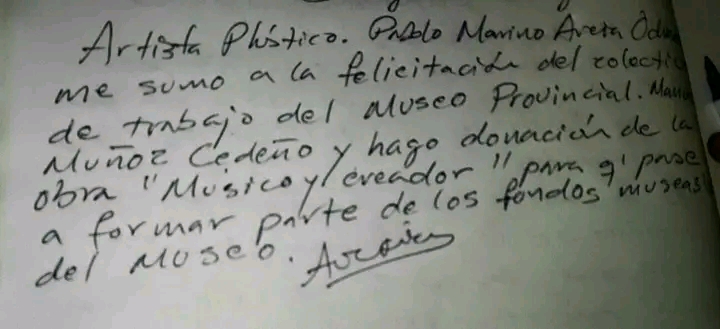 Artista Plástico. Pablo Marino Areta
me sumo a la felicitación del colectivo
de trabajo del Museo Provincial.
Muñoz Cedeño y hago donación de la
obra "Músico y/ creador" para q' pase
a formar parte de los fondos
del Museo.